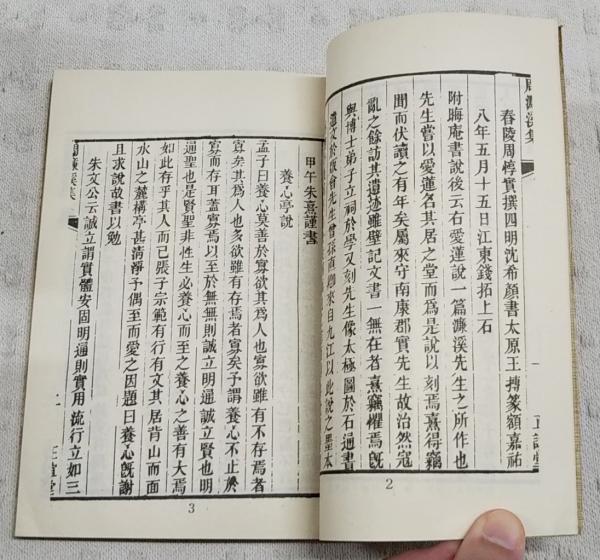 周濂溪集
一
正誼堂
春陵周惇實撰四明沈希顏書太原王摶篆額嘉祐
八年五月十五日江東錢拓上石
附晦庵書說後云右愛蓮說一篇濂溪先生之所作也
先生嘗以愛蓮名其居之堂而為是說以刻焉熹得竊
聞而伏讀之有年矣屬來守南康郡實先生故治然寇
亂之餘訪其遺迹雖壁記文書一無在者熹竊懼焉既
與博士弟子立祠於學又刻先生像太極圖於石通書
遺文於版會先生曾孫直卿來自九江以此說之墨本
2
甲午朱熹謹書
養心亭說
孟子曰養心莫善於寡欲其為人也寡欲雖有不存焉者
寡矣其為人也多欲雖有存焉者寡矣予謂養心不止於
寡而存耳蓋寡焉以至於無無則誠立明通誠立賢也明
通聖也是賢聖非性生必養心而至之養心之善有大焉
如此存乎其人而已張子宗範有行有文其居背山而面
水山之麓構亭甚清淨予偶至而愛之因題曰養心既謝
且求說故書以勉
朱文公云誠立謂實體安固明通則實用流行立如三
周濂溪集
二
正誼堂
3